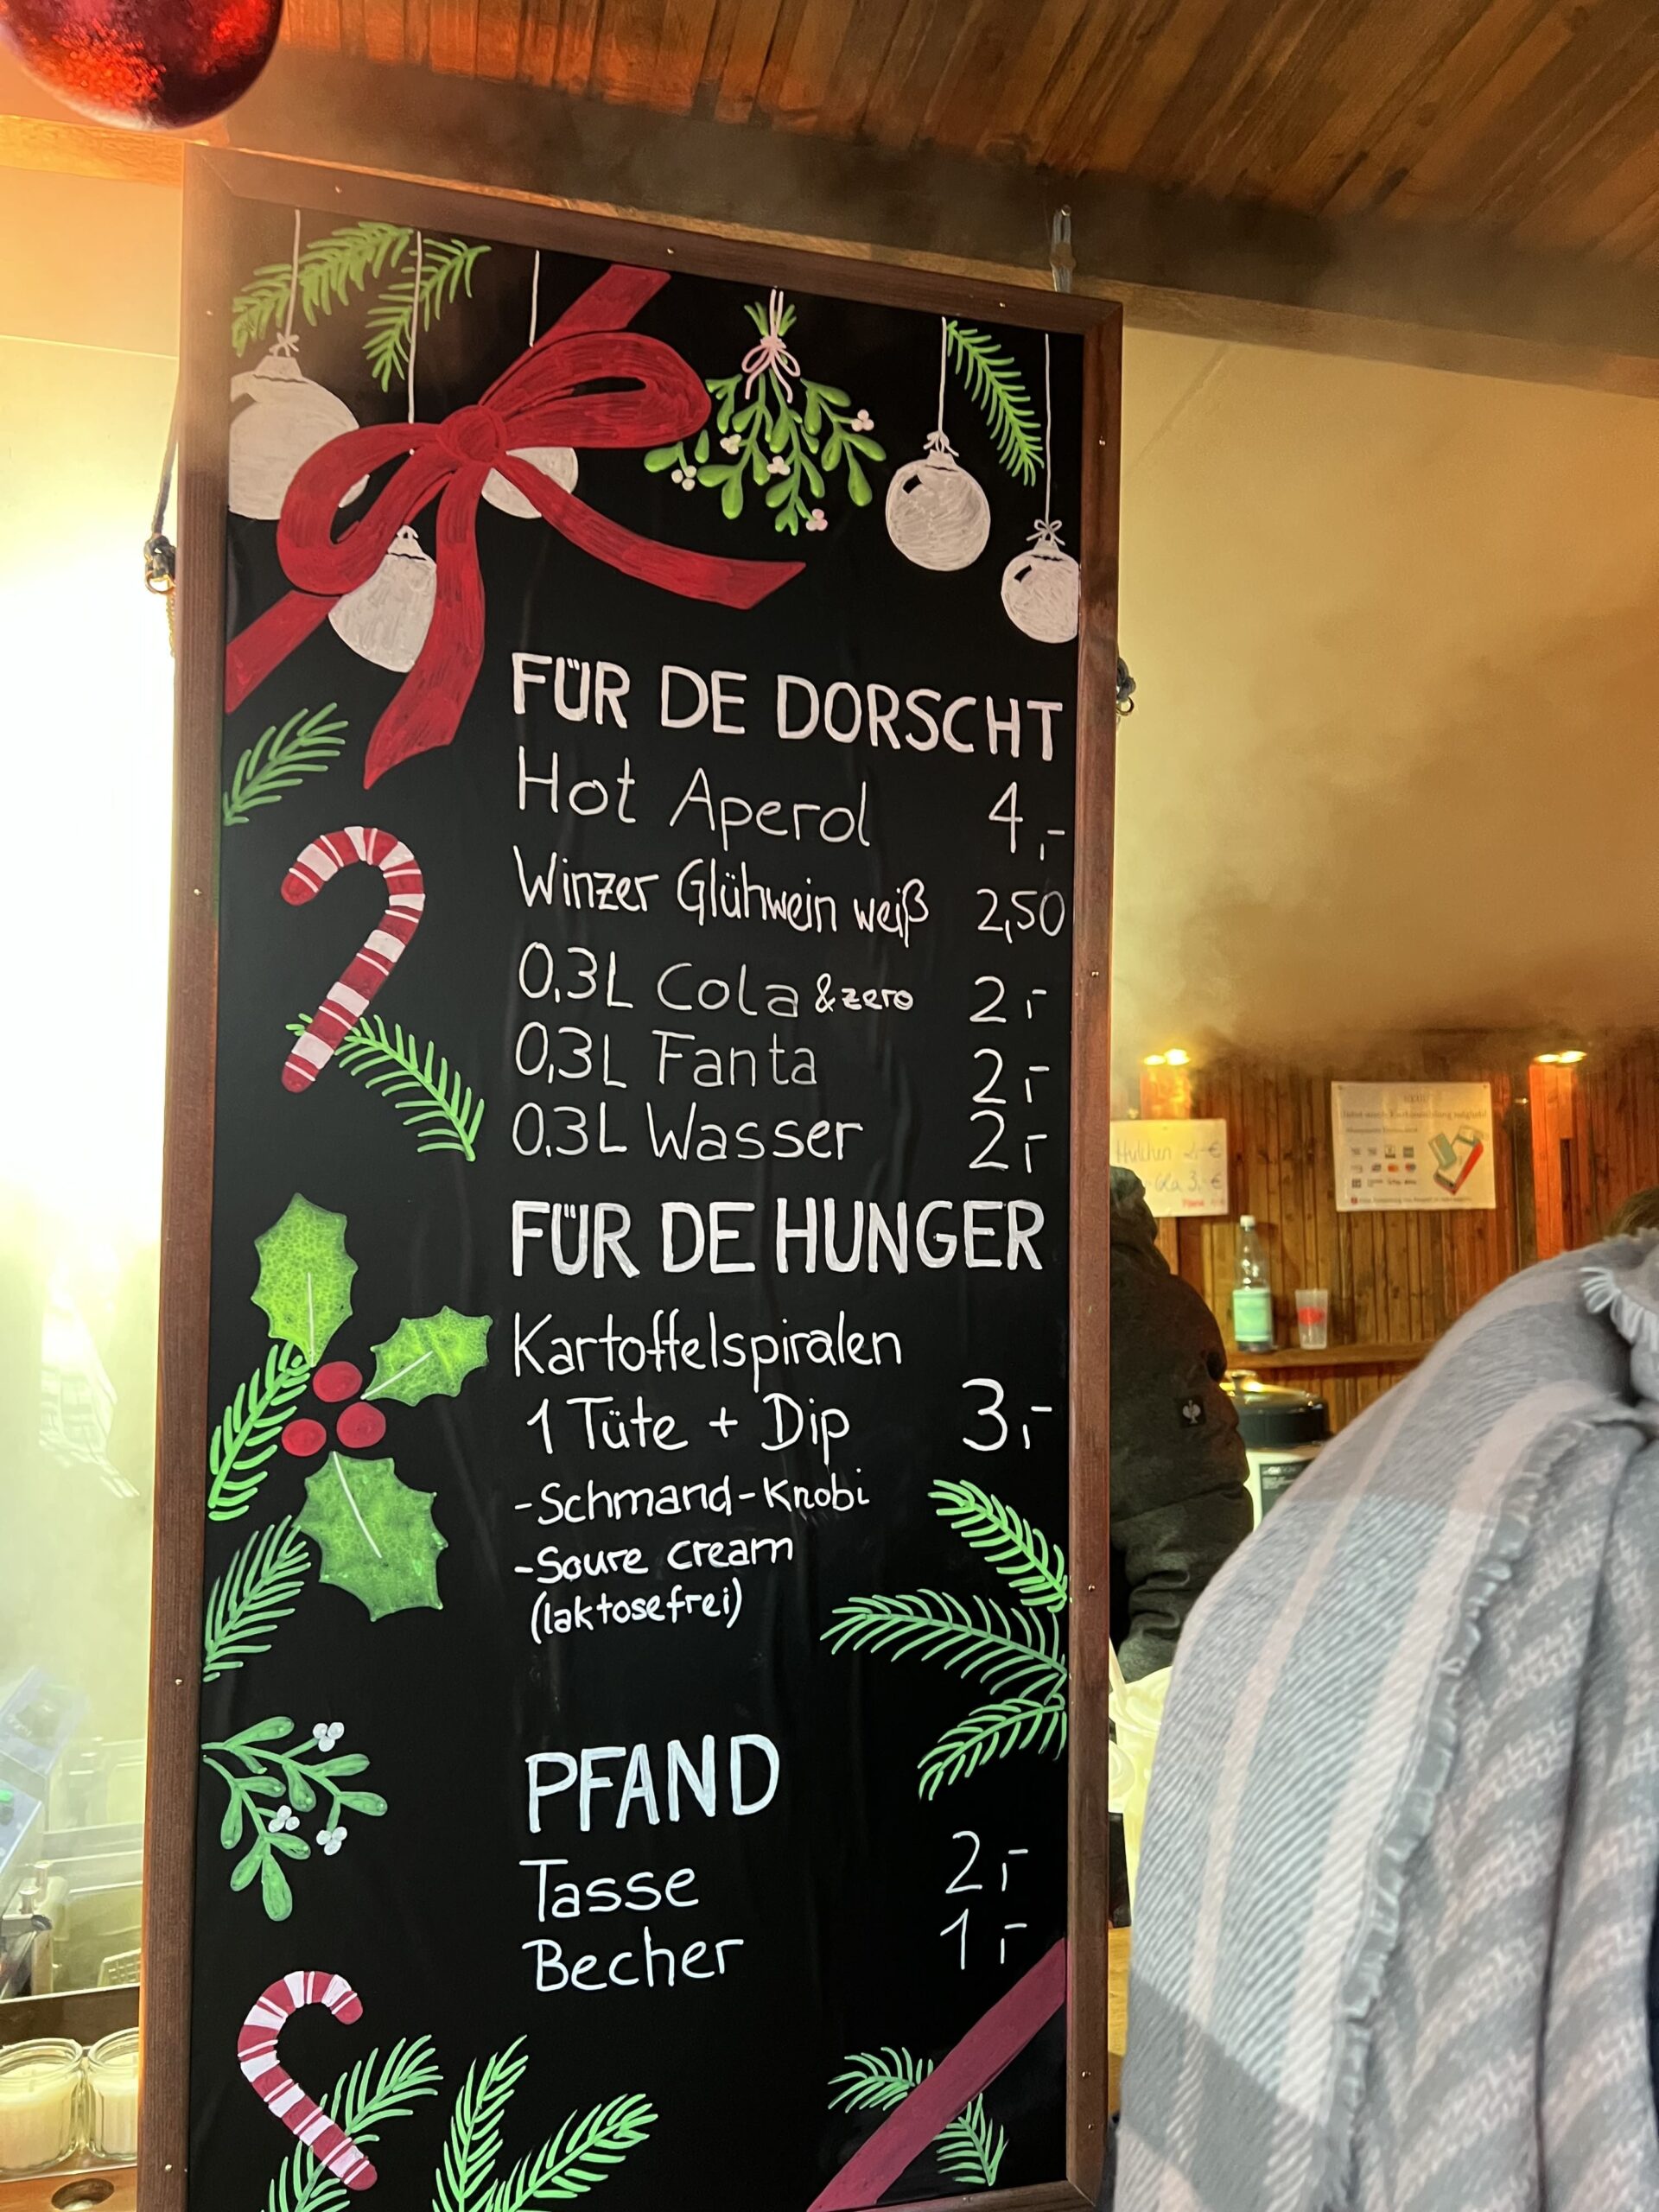 FÜR DE DORSCHT
Hot Aperol 4,-
Winzer Glühwein weiß 2,50
0,3L Cola & zero 2,-
0,3L Fanta 2,-
0,3L Wasser 2,-
FÜR DE HUNGER
Kartoffelspiralen
1 Tüte + Dip 3,-
-Schmand-Knobi
-Soure cream
(laktosefrei)
PFAND
Tasse 2,-
Becher 1,-